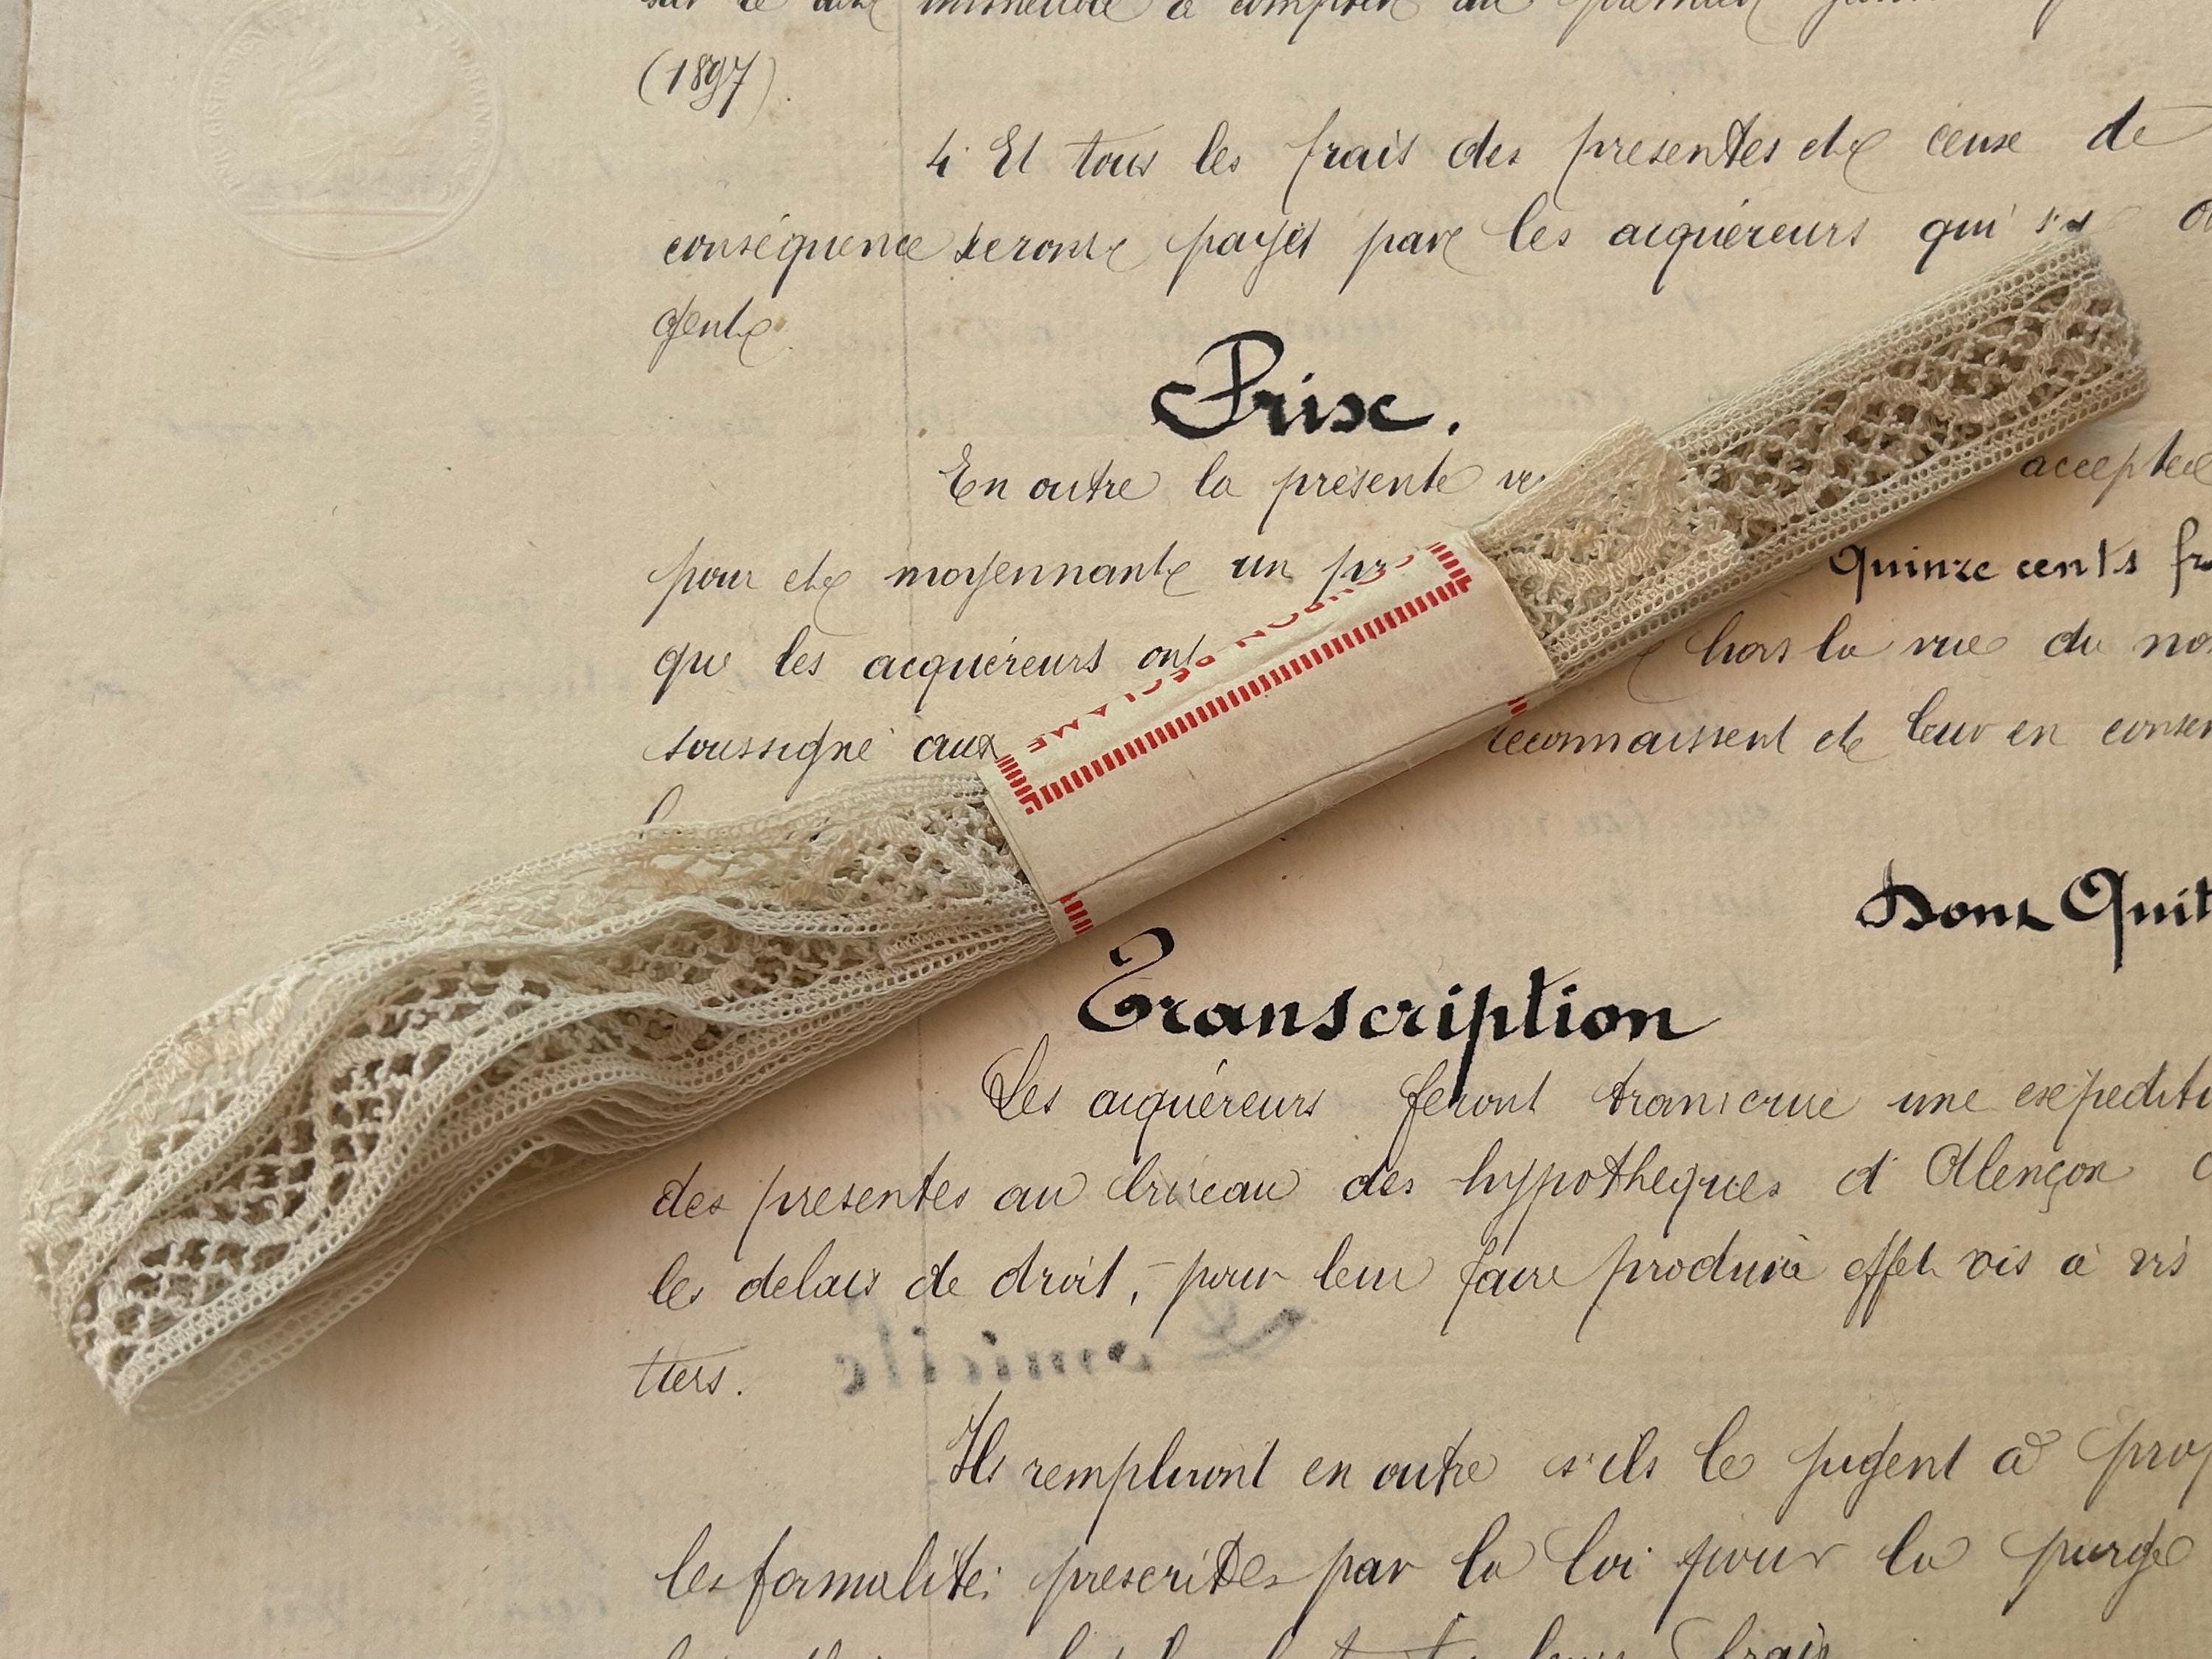 (1897).
4. Et tous les frais des presentes et ceux de
conséquence seront payés par les acquéreurs qui s'y
gent
Prix.
En outre la présente acceptée
pour et moyennant un Quinze cents
que les acquéreurs ont hors la vue du
soussigné aux reconnaissent et leur en
Dont Quit
Transcription
Les acquéreurs feront transcrire une expediti
des presentes au bureau des hypotheques d'Alençon
les delais de droit, pour leur faire produire effet vis à vis
tiers.
Domicile
Ils rempliront en outre s'ils le jugent à prop
les formalités prescrites par la loi pour la purge
frais